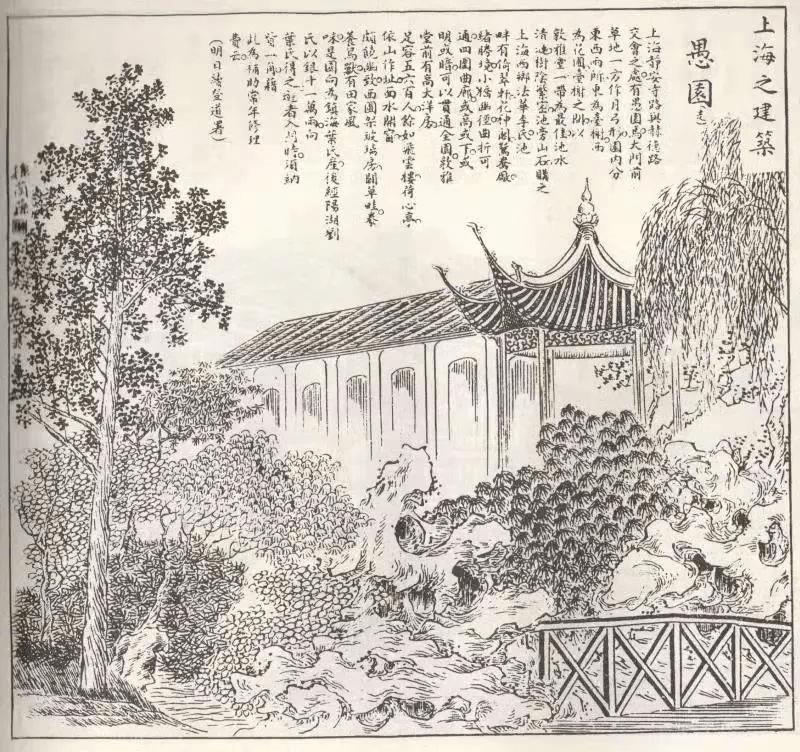 上海之建築
愚園
上海靜安寺路與赫德路
交會之處有愚園焉大門前
草地一方作月弓形園內分
東西兩所東為臺榭西
為花圃臺榭之以
敦雅堂一帶為最佳池水
清漣樹陰繁密池旁山石購之
上海西鄉法華李氏池
畔有倚翠軒花神閣鴛鴦廳
諸勝境小橋幽徑曲折可
通四圍曲廊或高或下或
明或暗可以貫通全園敦雅
堂前有高大洋房
足容五六百人餘如飛雲樓荷心亭
依山作址面水開窗
頗饒幽致西圃架玻璃房闢草畦
養鳥獸有田家風
味是園向為鎮海葉氏產後經陽湖劉
氏以銀十一萬兩向
葉氏得之遊者入門時須納
資一角藉
此為補助常年修理
費云
(明日續登道署)